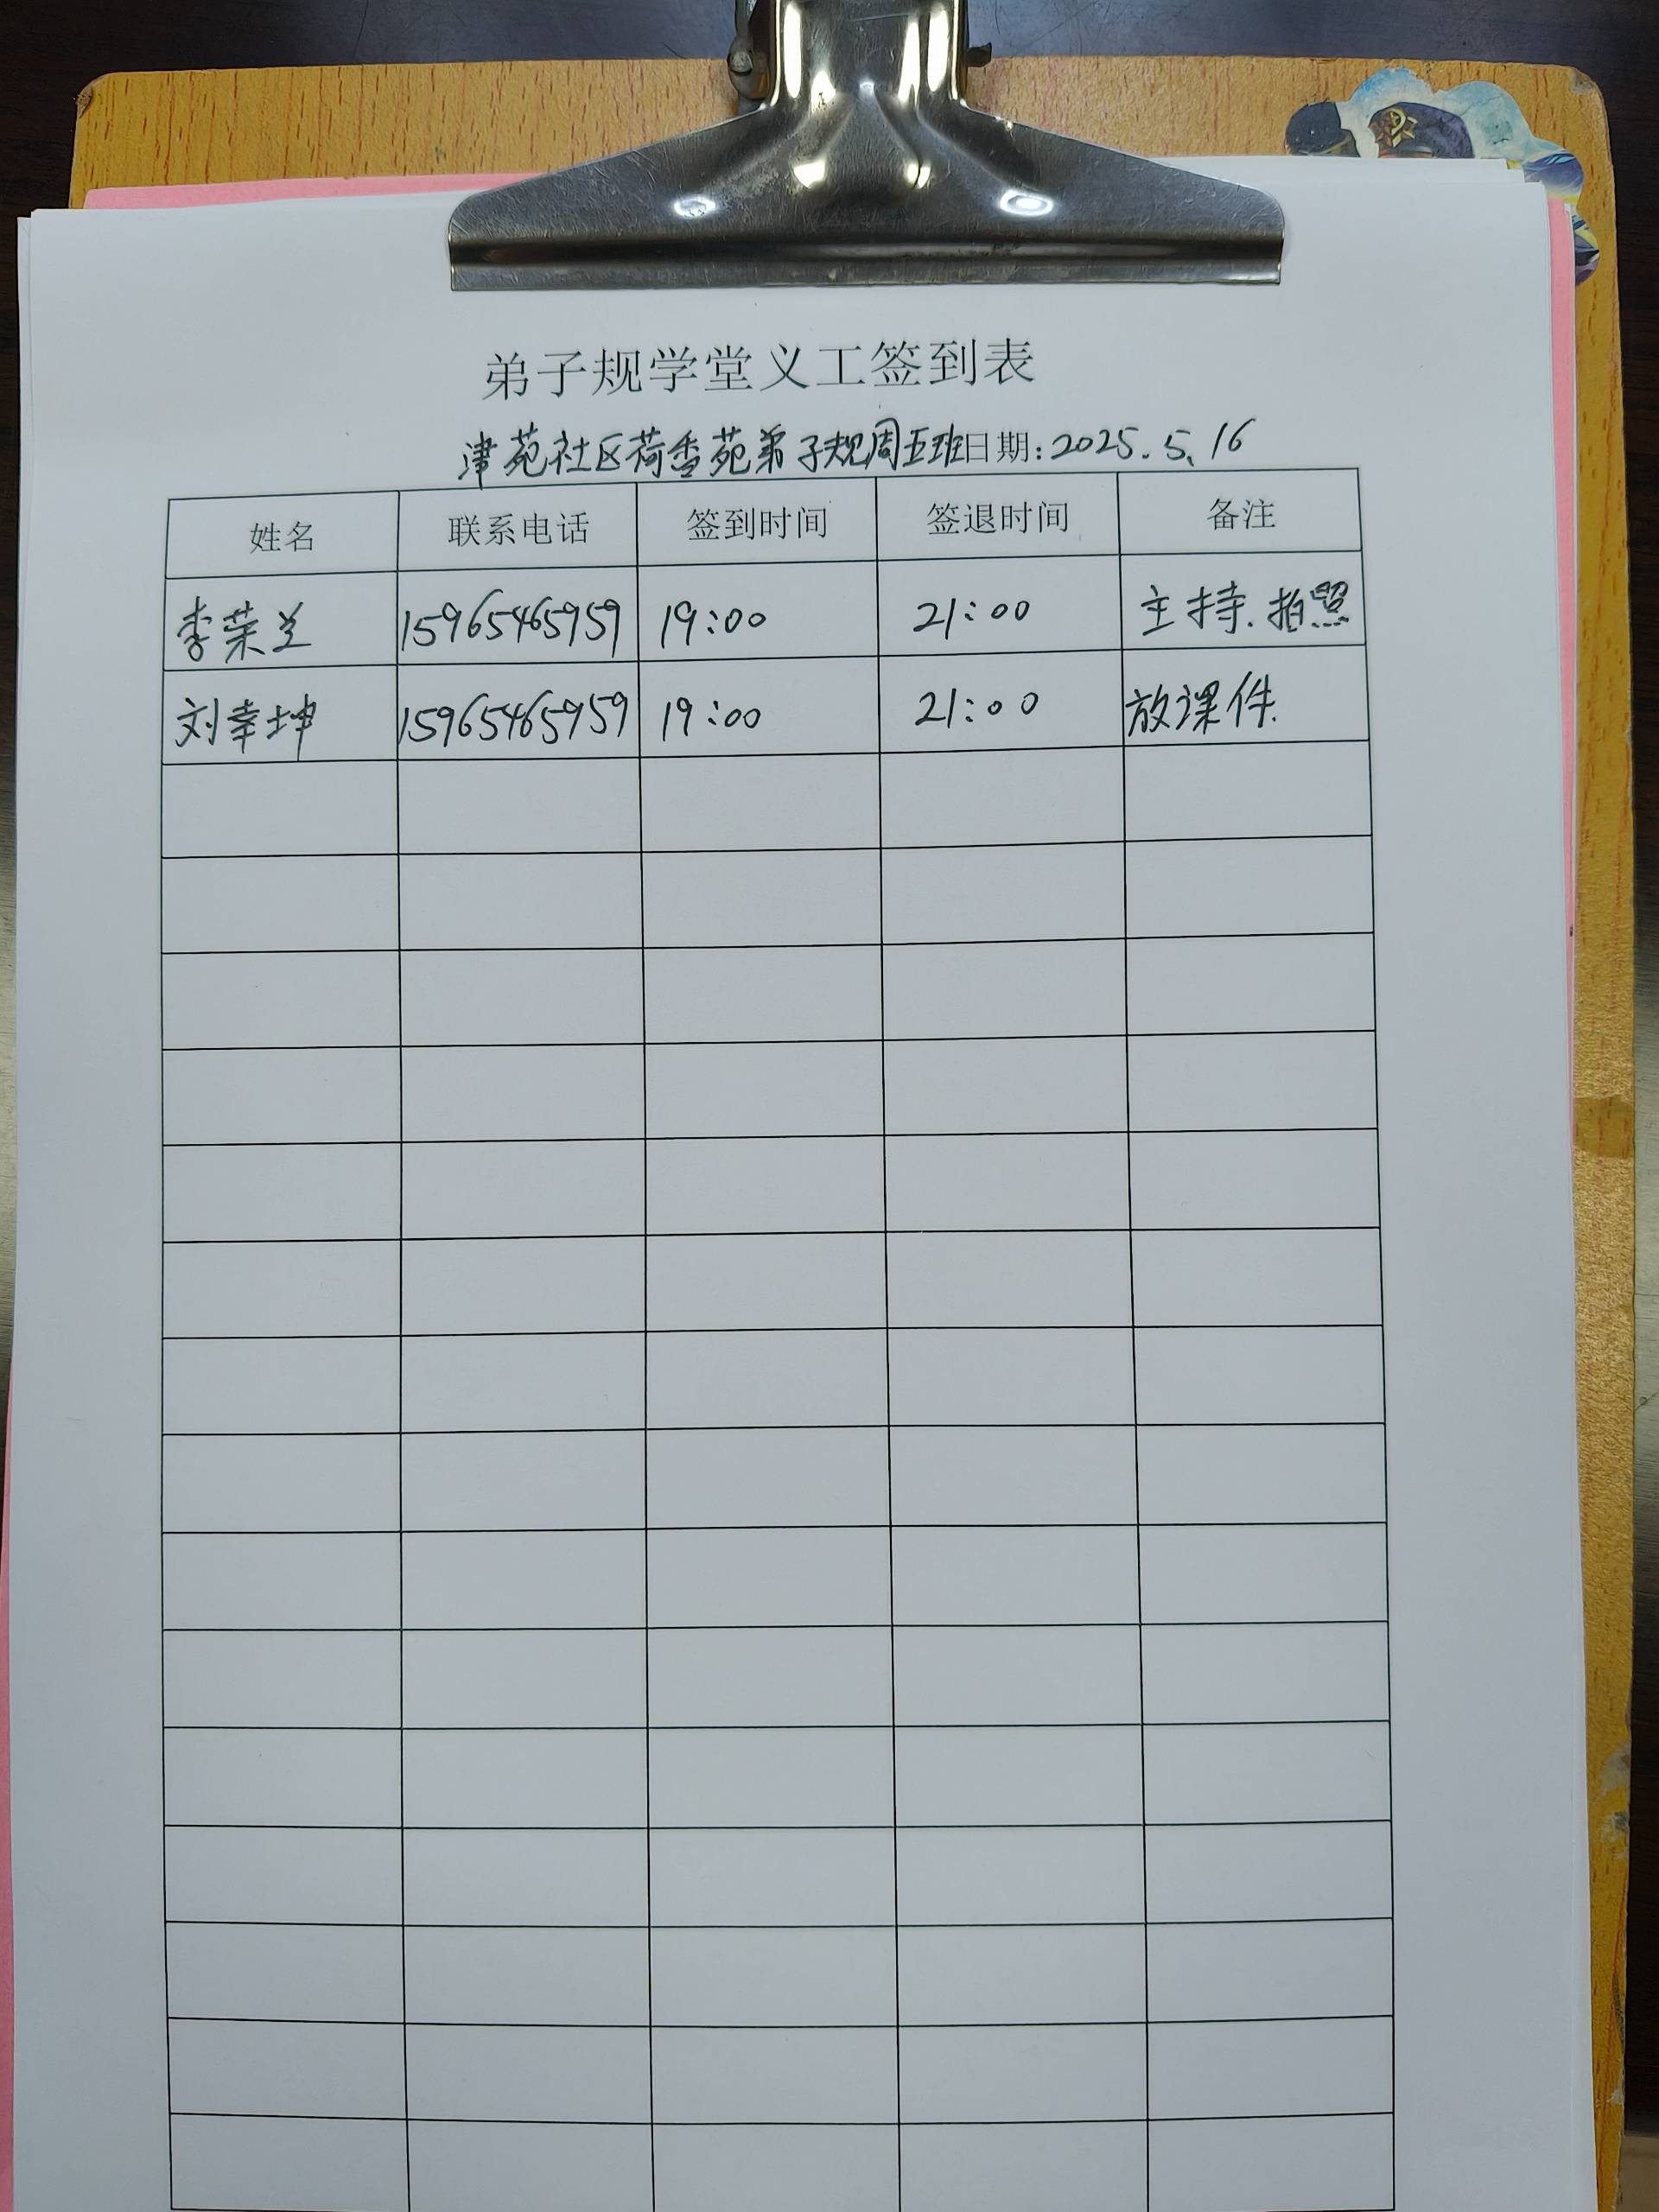 弟子规学堂义工签到表
津苑社区荷香苑弟子规周五班日期:2025.5.16
姓名 联系电话 签到时间 签退时间 备注
李荣兰 15965465959 19:00 21:00 主持.拍照
刘幸坤 15965465959 19:00 21:00 放课件